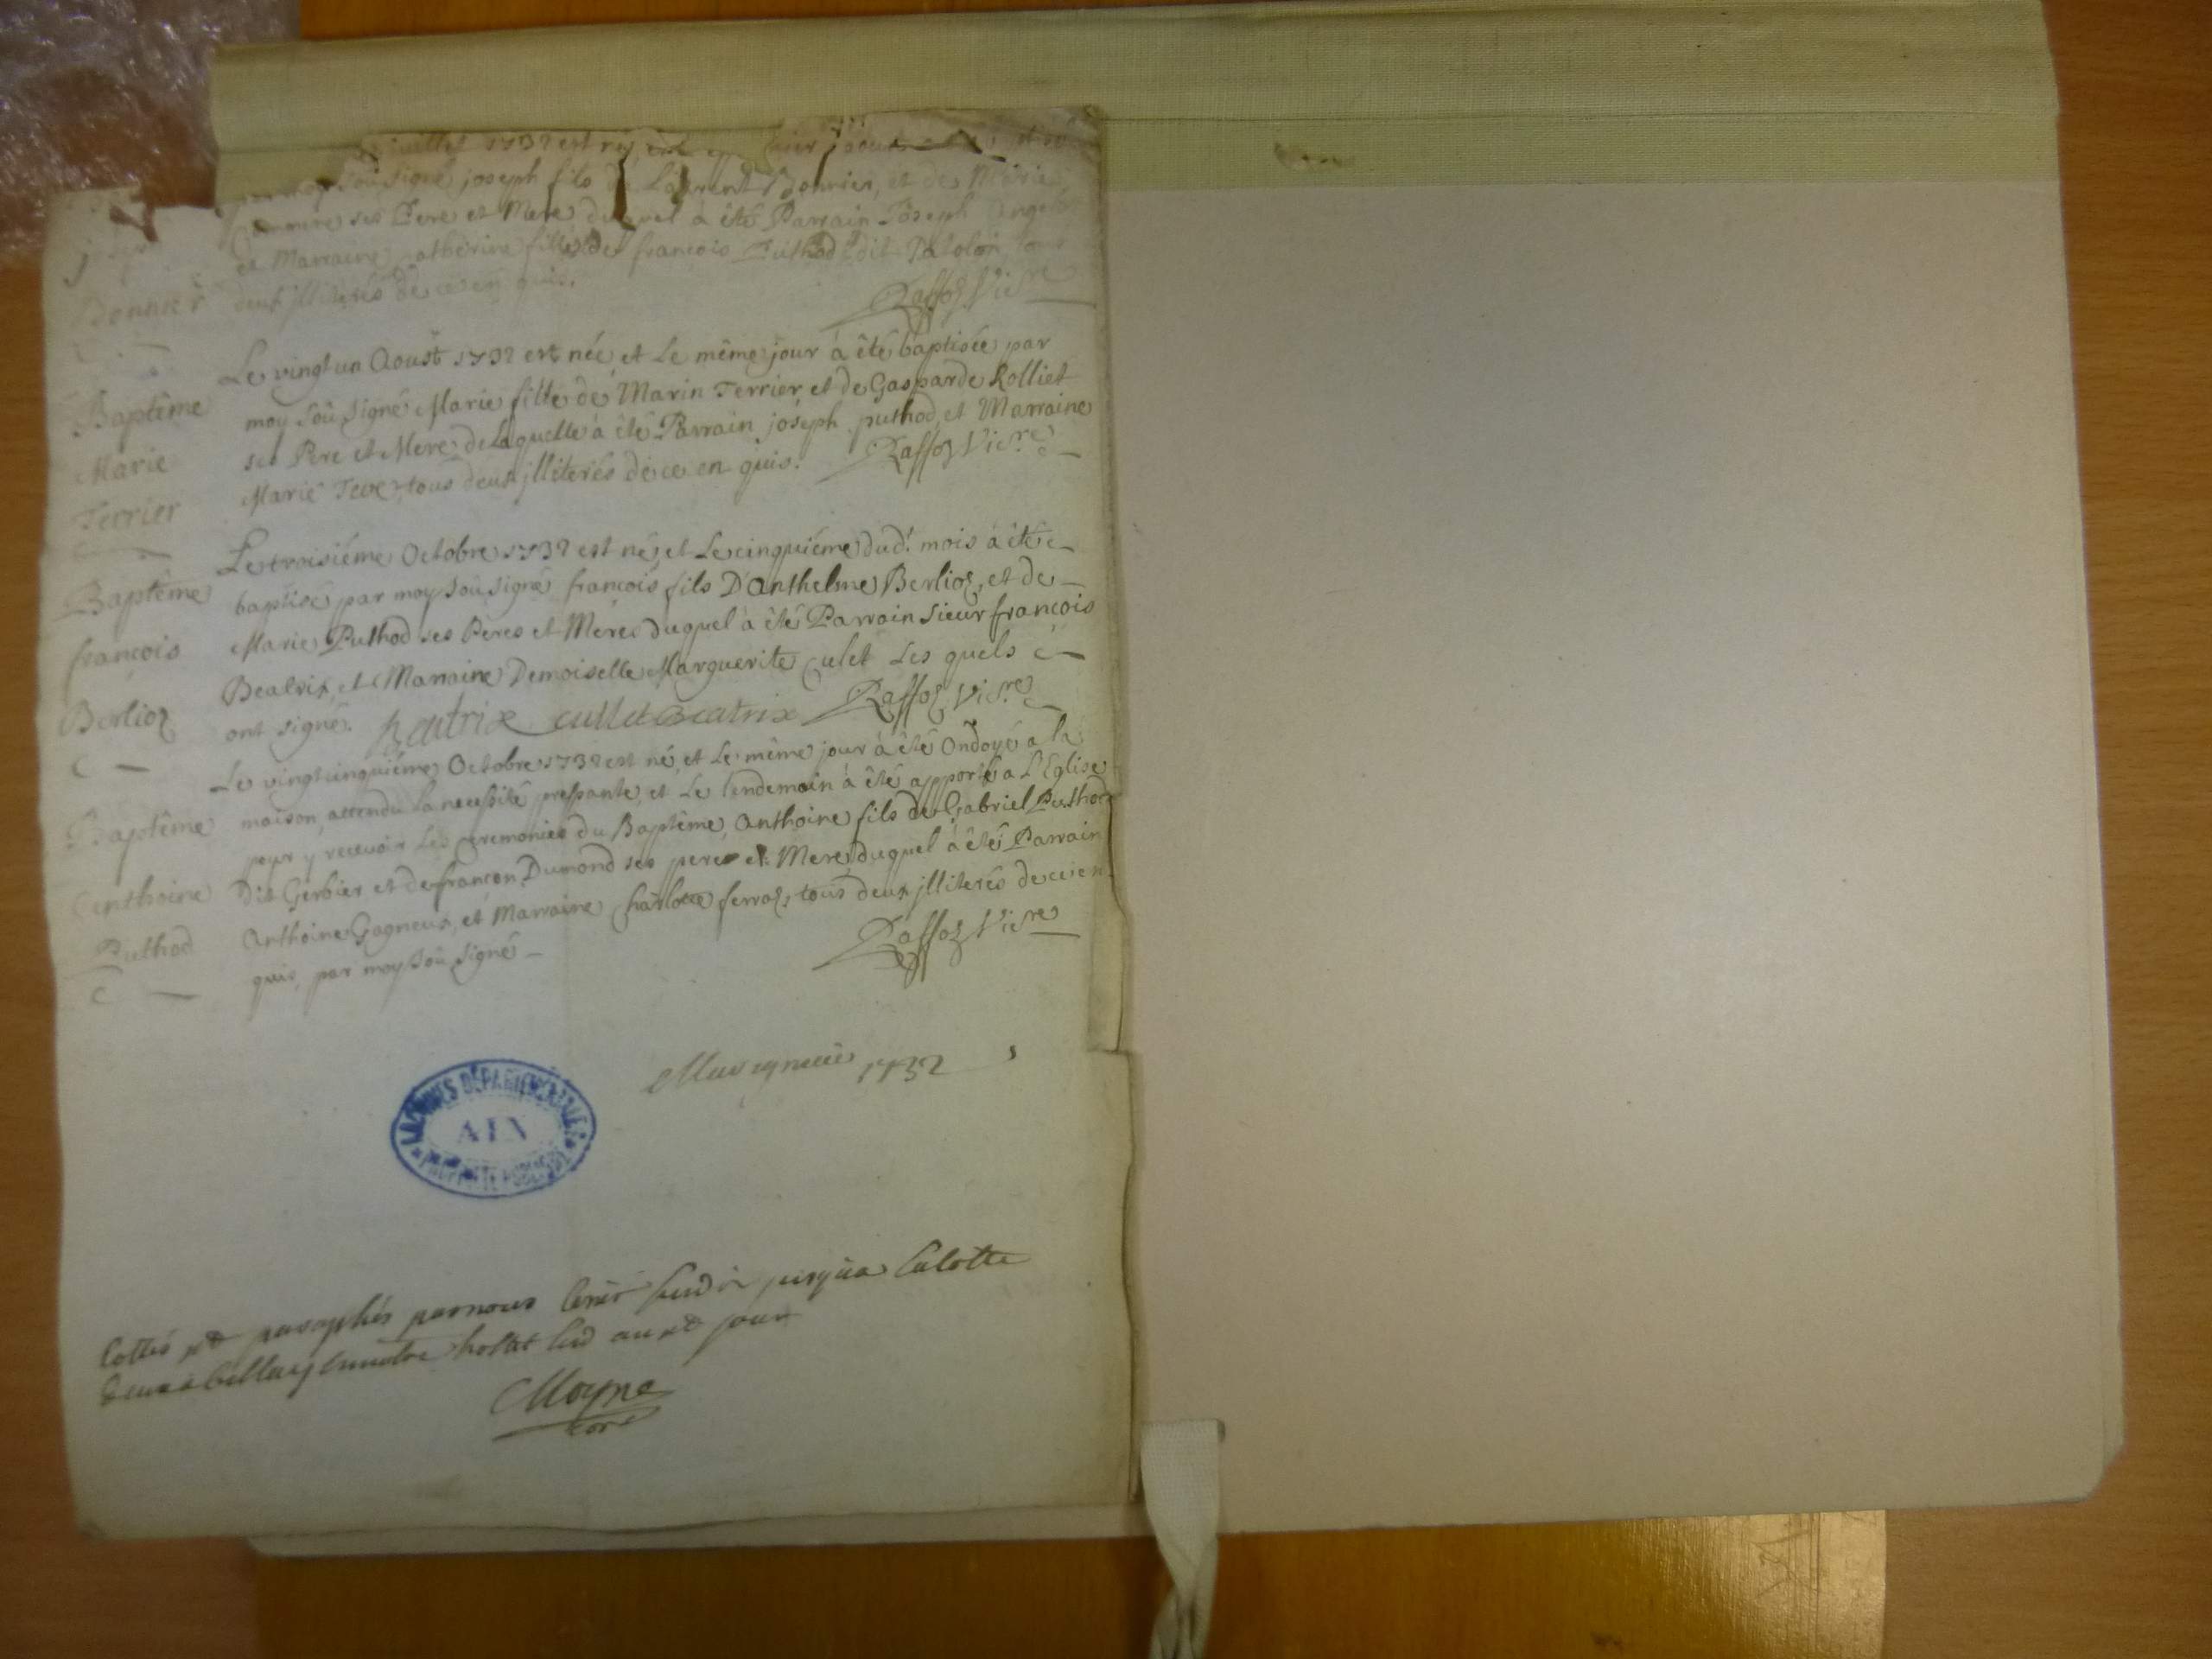 juillet 1732 est
soû signé joseph fils de Laurent Bonnier, et de Marie
ses Pere et Mere duquel à êté Parrain Joseph
joseph
et Marraine catherine fille de francois Puthod dit
Bonnier
deux jlliterés de ce en quis.
Raffoz Vicre
Le vingt un Aoust 1732 est née et Le même jour à êté baptisée par
Baptême
moy soû signé Marie fille de Marin Terrier et de Gasparde Rolliet
Marie
ses Pere et Mere, de Laquelle à êté Parrain joseph puthod, et Marraine
Terrier
Marie Teve, tous deux jlliterés de ce en quis. Raffoz Vicre
Le troisiéme Octobre 1732 est né, et Le cinquiéme dud.t mois à êté
Baptême
baptisé par moy soû signé francois fils D'Anthelme Berlioz, et de
francois
Marie Puthod ses Peres et Meres duquel à êté Parrain Sieur francois
Berlioz
Beatrix, et Marraine Demoiselle Marguerite Culet Les quels
ont signé. Beatrix cullet Beatrix Raffoz Vicre
Le vingt cinquiéme Octobre 1732 est né, et Le même jour à êté Ondoyé a la
maison, attendu La necessité pressante, et Le lendemain à êté apporté a L'Eglise
Baptême
pour y recevoir Les Ceremonies du Baptême, Anthoine fils de Gabriel Puthod
Anthoine
Dit Gerbier et de francon Dumond ses pere et Mere, duquel à êté Parrain
Puthod
Anthoine Gagneux, et Marraine Charlotte ferroz, tous deux jlliterés de ce en
quis, par moy soû signé
Raffoz Vicre
1732
ARCHIVES DÉPARTEMENTALES
AIN
PROPRIÉTÉ PUBLIQUE
Cottés et paraphés par nous jusqua La Cotte
jour
Moyne